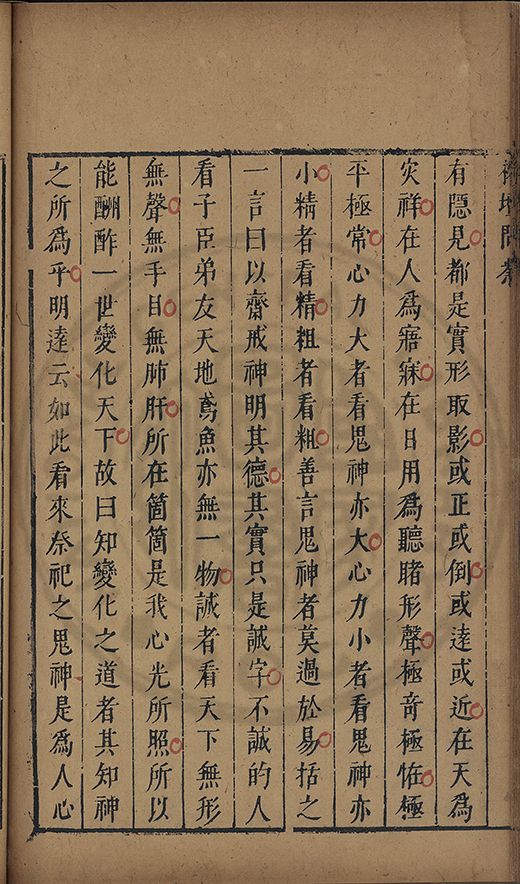 有隱見都是實形取影或正或倒或遠或近在天為
灾祥在人為寤寐在日用為聽睹形聲極奇極恠極
平極常心力大者看鬼神亦大心力小者看鬼神亦
小精者看精粗者看粗善言鬼神者莫過於易括之
一言曰以齋戒神明其德其實只是誠字不誠的人
看子臣弟友天地鳶魚亦無一物誠者看天下無形
無聲無手目無肺肝所在箇箇是我心光所照所以
能酬酢一世變化天下故曰知變化之道者其知神
之所為乎明達云如此看來祭祀之鬼神是為人心